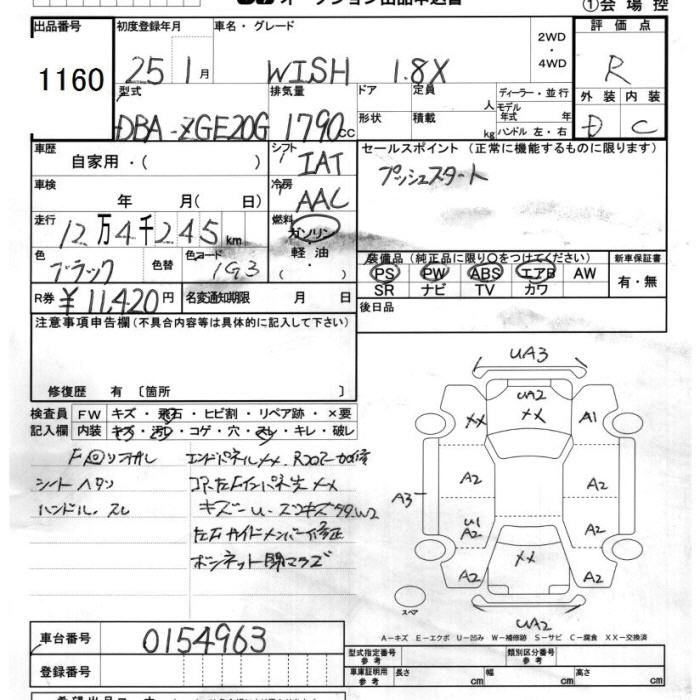 オークション出品申込書
①会場控
出品番号
1160
初度登録年月
25 1月
車名・グレード
WISH 1.8X
2WD
・
4WD
評価点
R
外装 内装
D C
型式
DBA-ZGE20G
排気量
1790cc
ドア
形状
定員
人
積載
kg
ディーラー・並行
モデル年式 年
ハンドル 左・右
車歴
自家用・( )
シフト
IAT
冷房
AAC
セールスポイント(正常に機能するものに限ります)
プッシュスタート
車検
年 月( 日)
走行
12万4千245km
燃料
ガソリン
・
軽油
( ・ )
色
ブラック
色替
色コード
1G3
装備品(純正品に限り○をつけてください)
PS PW ABS エアB AW
SR ナビ TV カワ
新車保証書
有・無
R券 ¥11,420円
名変通知期限 月 日
後日品
注意事項申告欄(不具合内容等は具体的に記入して下さい)
修復歴 有〔箇所 〕
検査員
記入欄
FW キズ・飛石・ヒビ割・リペア跡・×要
内装 キズ・汚レ・コゲ・穴・スレ・キレ・破レ
シートヘタリ
ハンドルスレ
エンドパネルXX
キズ
左右サイドメンバー修正
ボンネット
UA3
UA2
XX XX A1
A2 A2
A3
U1
A2 A2
XX
A2 A2
スペア
UA2
A-キズ E-エクボ U-凹み W-補修跡 S-サビ C-腐食 XX-交換済
車台番号 0154963
登録番号
型式指定番号
参考
類別区分番号
参考
車庫証明用
参考
長さ cm 幅 cm 高さ cm